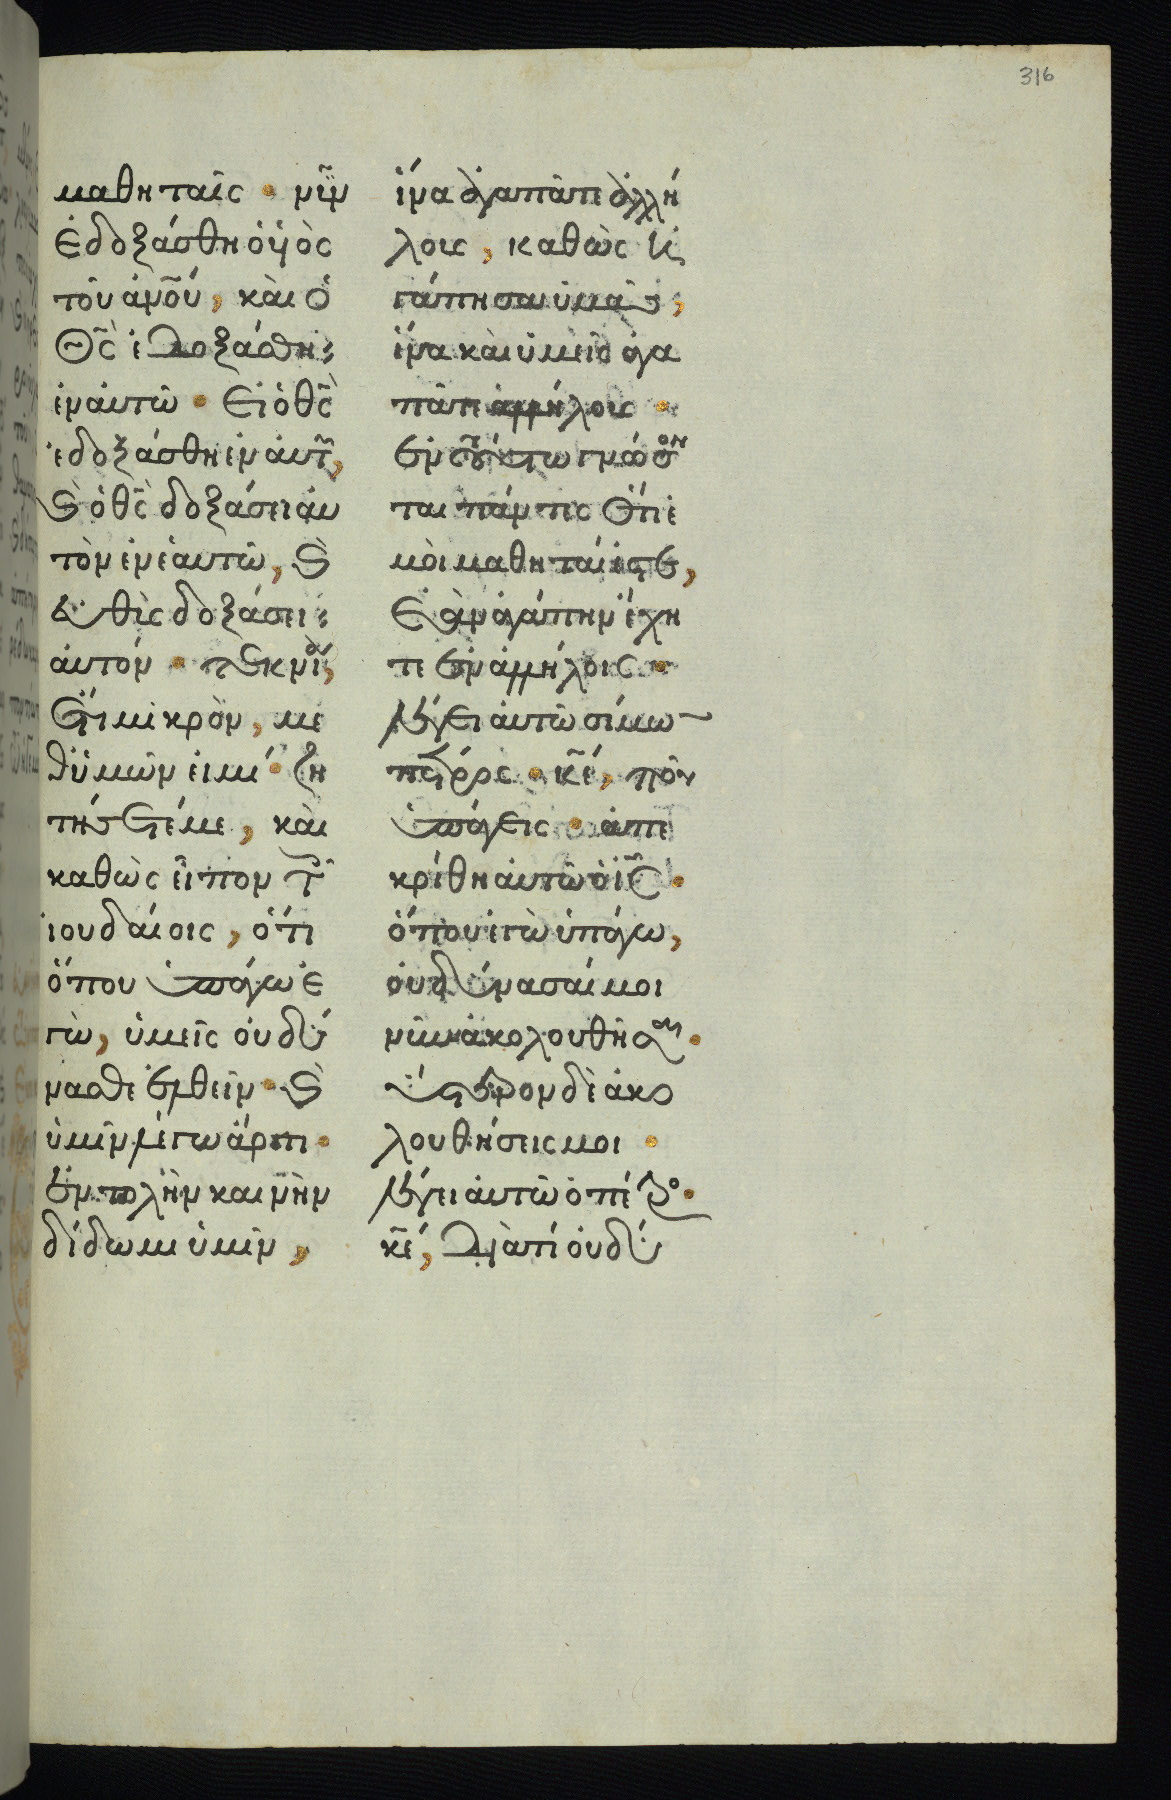 316
μαθηταῖς · νῦν
ἐδοξάσθη ὁ ὑιὸς
τοῦ ἀν̅ου̅, καὶ ὁ
Θ̅ς̅ ἐδοξάσθη
ἐν αὐτῶ · Εἰ ὁ θ̅ς̅
ἐδοξάσθη ἐν αὐτῶ,
καὶ ὁ θ̅ς̅ δοξάσει ἀυ
τὸν ἐν ἑαυτῶ, καὶ
ἐυθὺς δοξάσει
ἀυτόν · τεκνία,
Ἔτι μικρὸν, με
θ ὑμῶν εἰμί · ζη
τήσετέ με, καὶ
καθὼς εἶπον τοῖς
ἰουδαίοις, ὅτι
ὅπου ὑπάγω ἐ
γὼ, ὑμεῖς οὐ δύ
νασθε ἐλθεῖν · καὶ
ὑμῖν λέγω ἄρτι ·
Ἐντολὴν καινὴν
δίδωμι ὑμῖν,
ἵνα ἀγαπᾶτε ἀλλή
λους, καθὼς ἠ
γάπησα ὑμᾶς,
ἵνα καὶ ὑμεῖς ἀγα
πᾶτε ἀλλήλους ·
ἐν τούτω γνώσον
ται πάντες ὅτι ἐ
μοὶ μαθηταί ἐστε,
Ἐὰν ἀγάπην ἔχη
τε ἐν ἀλλήλοις ·
λέγει αὐτῶ σίμων
πέτρος · κ̅ε̅, ποῦ
ὑπάγεις · ἀπε
κρίθη αὐτῶ ὁ ι̅ς̅ ·
ὅπου ἐγὼ ὑπάγω,
οὐ δύνασαί μοι
νῦν ἀκολουθῆσαι ·
ὕστερον δὲ ἀκο
λουθήσεις μοι ·
λέγει αὐτῶ ὁ πέτρος ·
κ̅ε̅, διατί οὐ δύ